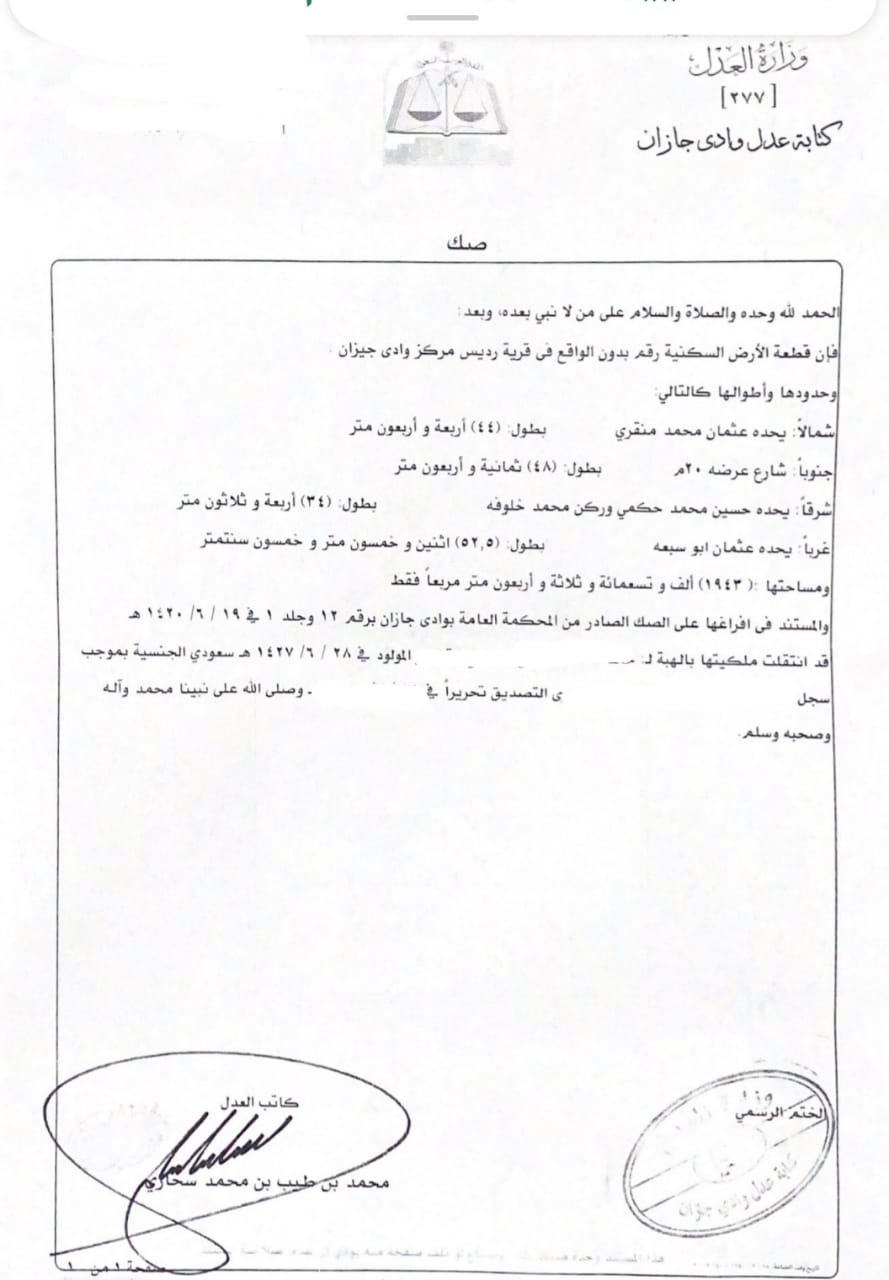 وزارة العدل
[٢٧٧]
كتابة عدل وادى جازان
صك
الحمد لله وحده والصلاة والسلام على من لا نبي بعده، وبعد:
فإن قطعة الأرض السكنية رقم بدون الواقع فى قرية رديس مركز وادى جيزان
وحدودها وأطوالها كالتالي:
شمالاً: يحده عثمان محمد منقري بطول: (٤٤) أربعة و أربعون متر
جنوباً: شارع عرضه ٢٠م بطول: (٤٨) ثمانية و أربعون متر
شرقاً: يحده حسين محمد حكمي وركن محمد خلوفه بطول: (٣٤) أربعة و ثلاثون متر
غرباً: يحده عثمان ابو سبعه بطول: (٥٢,٥) اثنين و خمسون متر و خمسون سنتمتر
ومساحتها :( ١٩٤٣) ألف و تسعمائة و ثلاثة و أربعون متر مربعاً فقط
والمستند فى افراغها على الصك الصادر من المحكمة العامة بوادى جازان برقم ١٢ وجلد ١ في ١٩ / ٦ / ١٤٢٠ هـ
قد انتقلت ملكيتها بالهبة لـ المولود في ٢٨ / ٦ / ١٤٢٧ هـ سعودي الجنسية بموجب
سجل ى التصديق تحريرا في وصلى الله على نبينا محمد وآله
وصحبه وسلم.
كاتب العدل
الختم الرسمي
محمد بن طيب بن محمد سحاري
وزارة العدل
كتابة عدل وادى جازان
صفحة ١ من ١